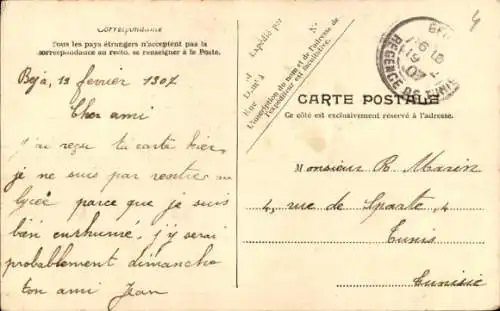 Correspondance
Tous les pays étrangers n'acceptent pas la
correspondance au recto, se renseigner à la Poste.
Béja, 19 février 1907
Cher ami
J'ai reçu ta carte hier,
je ne suis pas rentré au
lycée parce que je suis
bien enrhumé, j'y serai
probablement dimanche
ton ami Jean
Expédié par
Nº
Dom¹ à
Rue
L'inscription du nom et de l'adresse de
l'expéditeur est facultative.
4
RÉGENCE DE TUNIS
CARTE POSTALE
Ce côté est exclusivement réservé à l'adresse.
Monsieur R. Marin
4, rue de Sparte, 4
Tunis
Tunisie